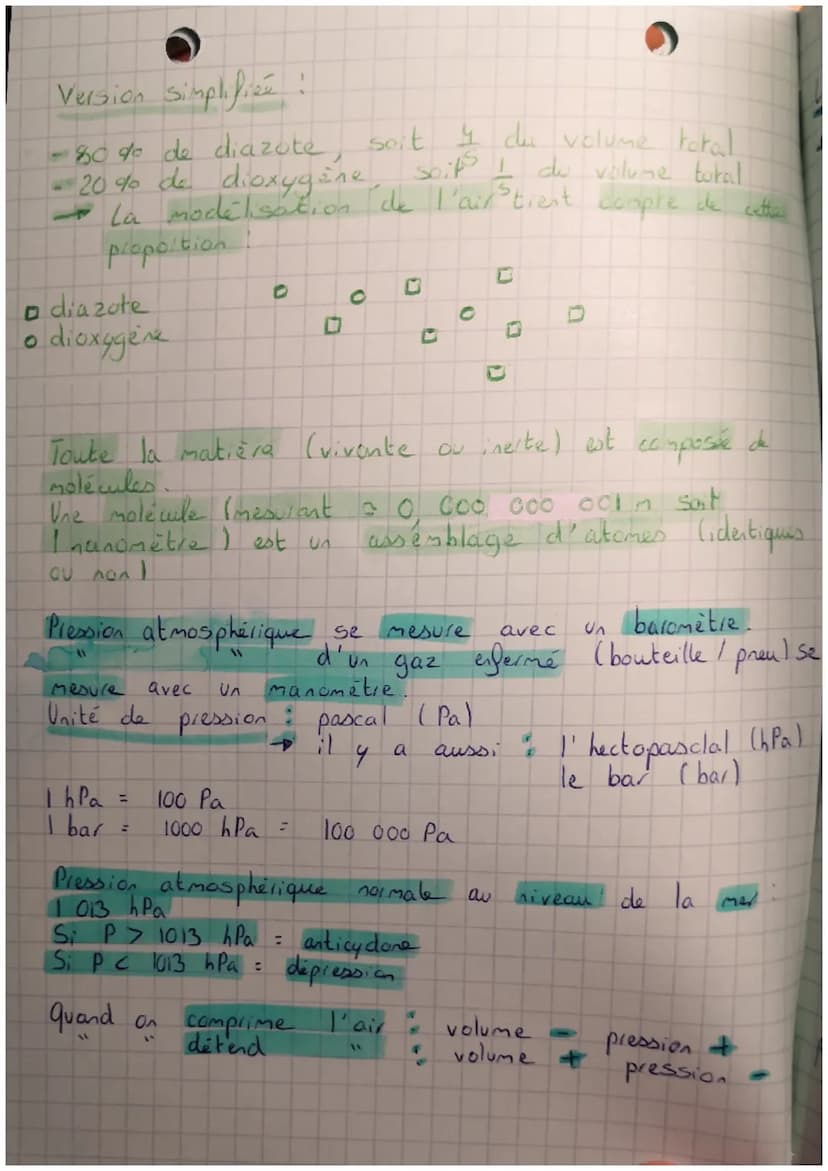 Version simplifiée :
- 80 % de diazote, soit 4/5 du volume total
- 20 % de dioxygène, soit 1/5 du volume total
→ La modélisation de l'air tient compte de cette
proportion !
□ diazote
o dioxygène
Toute la matière (vivante ou inerte) est composé de
molécules.
Une molécule (mesurant ≈ 0, 000 000 001 m soit
1 nanomètre) est un assemblage d'atomes (identiques
ou non)
Pression atmosphérique se mesure avec un baromètre.
" " d'un gaz enfermé (bouteille / pneu) se
mesure avec un manomètre.
Unité de pression : pascal (Pa)
→ il y a aussi : l'hectopasclal (hPa)
le bar (bar)
1 hPa = 100 Pa
1 bar = 1000 hPa = 100 000 Pa
Pression atmosphérique normale au niveau de la mer :
1 013 hPa
Si P > 1013 hPa = anticyclone
Si P < 1013 hPa = dépression
Quand on comprime l'air : volume - pression +
" " détend " : volume + pression -